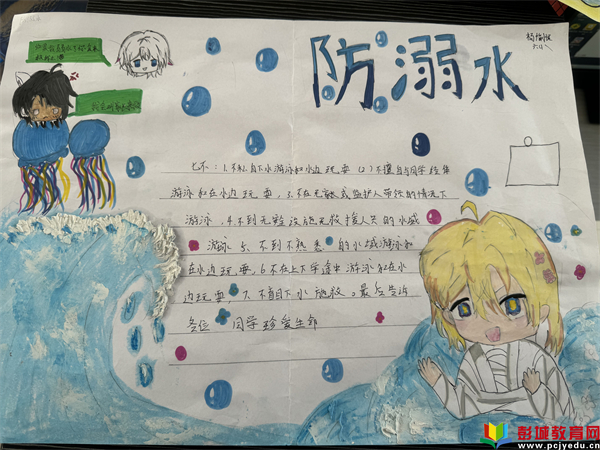 防溺水
七不:1.不私自下水游泳和水边玩耍(2)不擅自与同学结伴
游泳和在水边玩耍,3.不在无家长或监护人带领的情况下
游泳,4.不到无设施无救援人员的水域
游泳 5.不到不熟悉的水域游泳和
在水边玩耍,6.不在上下学途中游泳和在水
边玩耍,7.不盲目下水施救。最后告诉
各位 同学珍爱生命
彭城教育网
www.pcjyedu.com